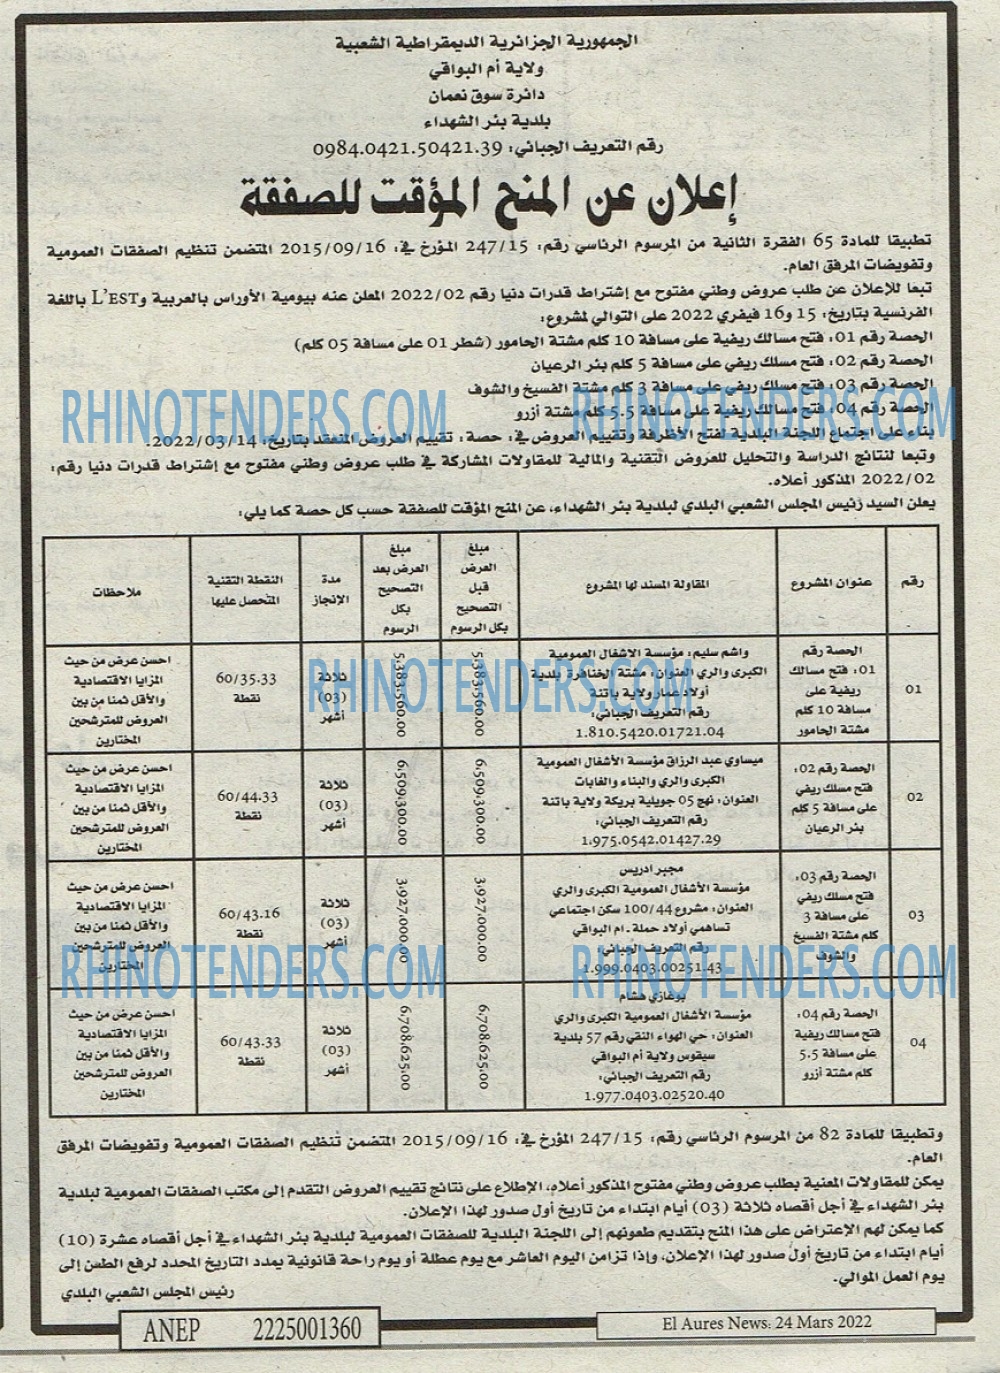 الجمهورية الجزائرية الديمقراطية الشعبية
ولاية أم البواقي
دائرة سوق نعمان
بلدية بئر الشهداء
رقم التعريف الجبائي: 0984.0421.50421.39
إعلان عن المنح المؤقت للصفقة
تطبيقا للمادة 65 الفقرة الثانية من المرسوم الرئاسي رقم: 247/15 المؤرخ في: 2015/09/16 المتضمن تنظيم الصفقات العمومية
وتفويضات المرفق العام.
تبعا للإعلان عن طلب عروض وطني مفتوح مع إشتراط قدرات دنيا رقم 2022/02 المعلن عنه بيومية الأوراس بالعربية وL'EST باللغة
الفرنسية بتاريخ: 15 و16 فيفري 2022 على التوالي لمشروع:
الحصة رقم 01: فتح مسالك ريفية على مسافة 10 كلم مشتة الحامور (شطر 01 على مسافة 05 كلم)
الحصة رقم 02: فتح مسلك ريفي على مسافة 5 كلم بئر الرعيان
الحصة رقم 03: فتح مسلك ريفي على مسافة 3 كلم مشتة الفسيخ والشوف
الحصة رقم 04: فتح مسالك ريفية على مسافة 5.5 كلم مشتة أزرو
RHINOTENDERS.COM RHINOTENDERS.COM
بناء على اجتماع اللجنة البلدية لفتح الأظرفة وتقييم العروض في: حصة: تقييم العروض المنعقد بتاريخ: 2022/03/14.
وتبعا لنتائج الدراسة والتحليل للعروض التقنية والمالية للمقاولات المشاركة في طلب عروض وطني مفتوح مع إشتراط قدرات دنيا رقم:
2022/02 المذكور أعلاه.
يعلن السيد رئيس المجلس الشعبي البلدي لبلدية بئر الشهداء، عن المنح المؤقت للصفقة حسب كل حصة كما يلي:
رقم
عنوان المشروع
المقاولة المسند لها المشروع
مبلغ
العرض
قبل
التصحيح
بكل الرسوم
مبلغ
العرض بعد
التصحيح
بكل
الرسوم
مدة
الإنجاز
النقطة التقنية
المتحصل عليها
ملاحظات
01
الحصة رقم
01: فتح مسالك
ريفية على
مسافة 10 كلم
مشتة الحامور
واشم سليم: مؤسسة الاشغال العمومية
الكبرى والري العنوان: مشتة الخنافرة بلدية
أولاد عمار ولاية باتنة
رقم التعريف الجبائي:
1.810.5420.01721.04
5.383.560.00
5.383.560.00
ثلاثة
(03)
أشهر
60/35.33
نقطة
احسن عرض من حيث
المزايا الاقتصادية
والأقل ثمنا من بين
العروض للمترشحين
المختارين
RHINOTENDERS.COM
02
الحصة رقم 02:
فتح مسلك ريفي
على مسافة 5 كلم
بئر الرعيان
ميساوي عبد الرزاق مؤسسة الأشغال العمومية
الكبرى والري والبناء والغابات
العنوان: نهج 05 جويلية بريكة ولاية باتنة
رقم التعريف الجبائي:
1.975.0542.01427.29
6.509.300.00
6.509.300.00
ثلاثة
(03)
أشهر
60/44.33
نقطة
احسن عرض من حيث
المزايا الاقتصادية
والأقل ثمنا من بين
العروض للمترشحين
المختارين
03
الحصة رقم 03:
فتح مسلك ريفي
على مسافة 3
كلم مشتة الفسيخ
والشوف
مجبر ادريس
مؤسسة الأشغال العمومية الكبرى والري
العنوان: مشروع 100/44 سكن اجتماعي
تساهمي أولاد حملة ـ ام البواقي
رقم التعريف الجبائي:
1.999.0403.00251.43
3.927.000.00
3.927.000.00
ثلاثة
(03)
أشهر
60/43.16
نقطة
احسن عرض من حيث
المزايا الاقتصادية
والأقل ثمنا من بين
العروض للمترشحين
المختارين
RHINOTENDERS.COM RHINOTENDERS.COM
04
الحصة رقم 04:
فتح مسالك ريفية
على مسافة 5.5
كلم مشتة أزرو
بوغازي هشام
مؤسسة الأشغال العمومية الكبرى والري
العنوان: حي الهواء النقي رقم 57 بلدية
سيقوس ولاية أم البواقي
رقم التعريف الجبائي:
1.977.0403.02520.40
6.708.625.00
6.708.625.00
ثلاثة
(03)
أشهر
60/43.33
نقطة
احسن عرض من حيث
المزايا الاقتصادية
والأقل ثمنا من بين
العروض للمترشحين
المختارين
وتطبيقا للمادة 82 من المرسوم الرئاسي رقم: 247/15 المؤرخ في: 2015/09/16 المتضمن تنظيم الصفقات العمومية وتفويضات المرفق
العام.
يمكن للمقاولات المعنية بطلب عروض وطني مفتوح المذكور أعلاه، الإطلاع على نتائج تقييم العروض التقدم إلى مكتب الصفقات العمومية لبلدية
بئر الشهداء في أجل أقصاه ثلاثة (03) أيام ابتداء من تاريخ أول صدور لهذا الإعلان.
كما يمكن لهم الإعتراض على هذا المنح بتقديم طعونهم إلى اللجنة البلدية للصفقات العمومية لبلدية بئر الشهداء في أجل أقصاه عشرة (10)
أيام ابتداء من تاريخ أول صدور لهذا الإعلان، وإذا تزامن اليوم العاشر مع يوم عطلة أو يوم راحة قانونية يمدد التاريخ المحدد لرفع الطعن إلى
يوم العمل الموالي.
رئيس المجلس الشعبي البلدي
ANEP 2225001360
El Aures News: 24 Mars 2022